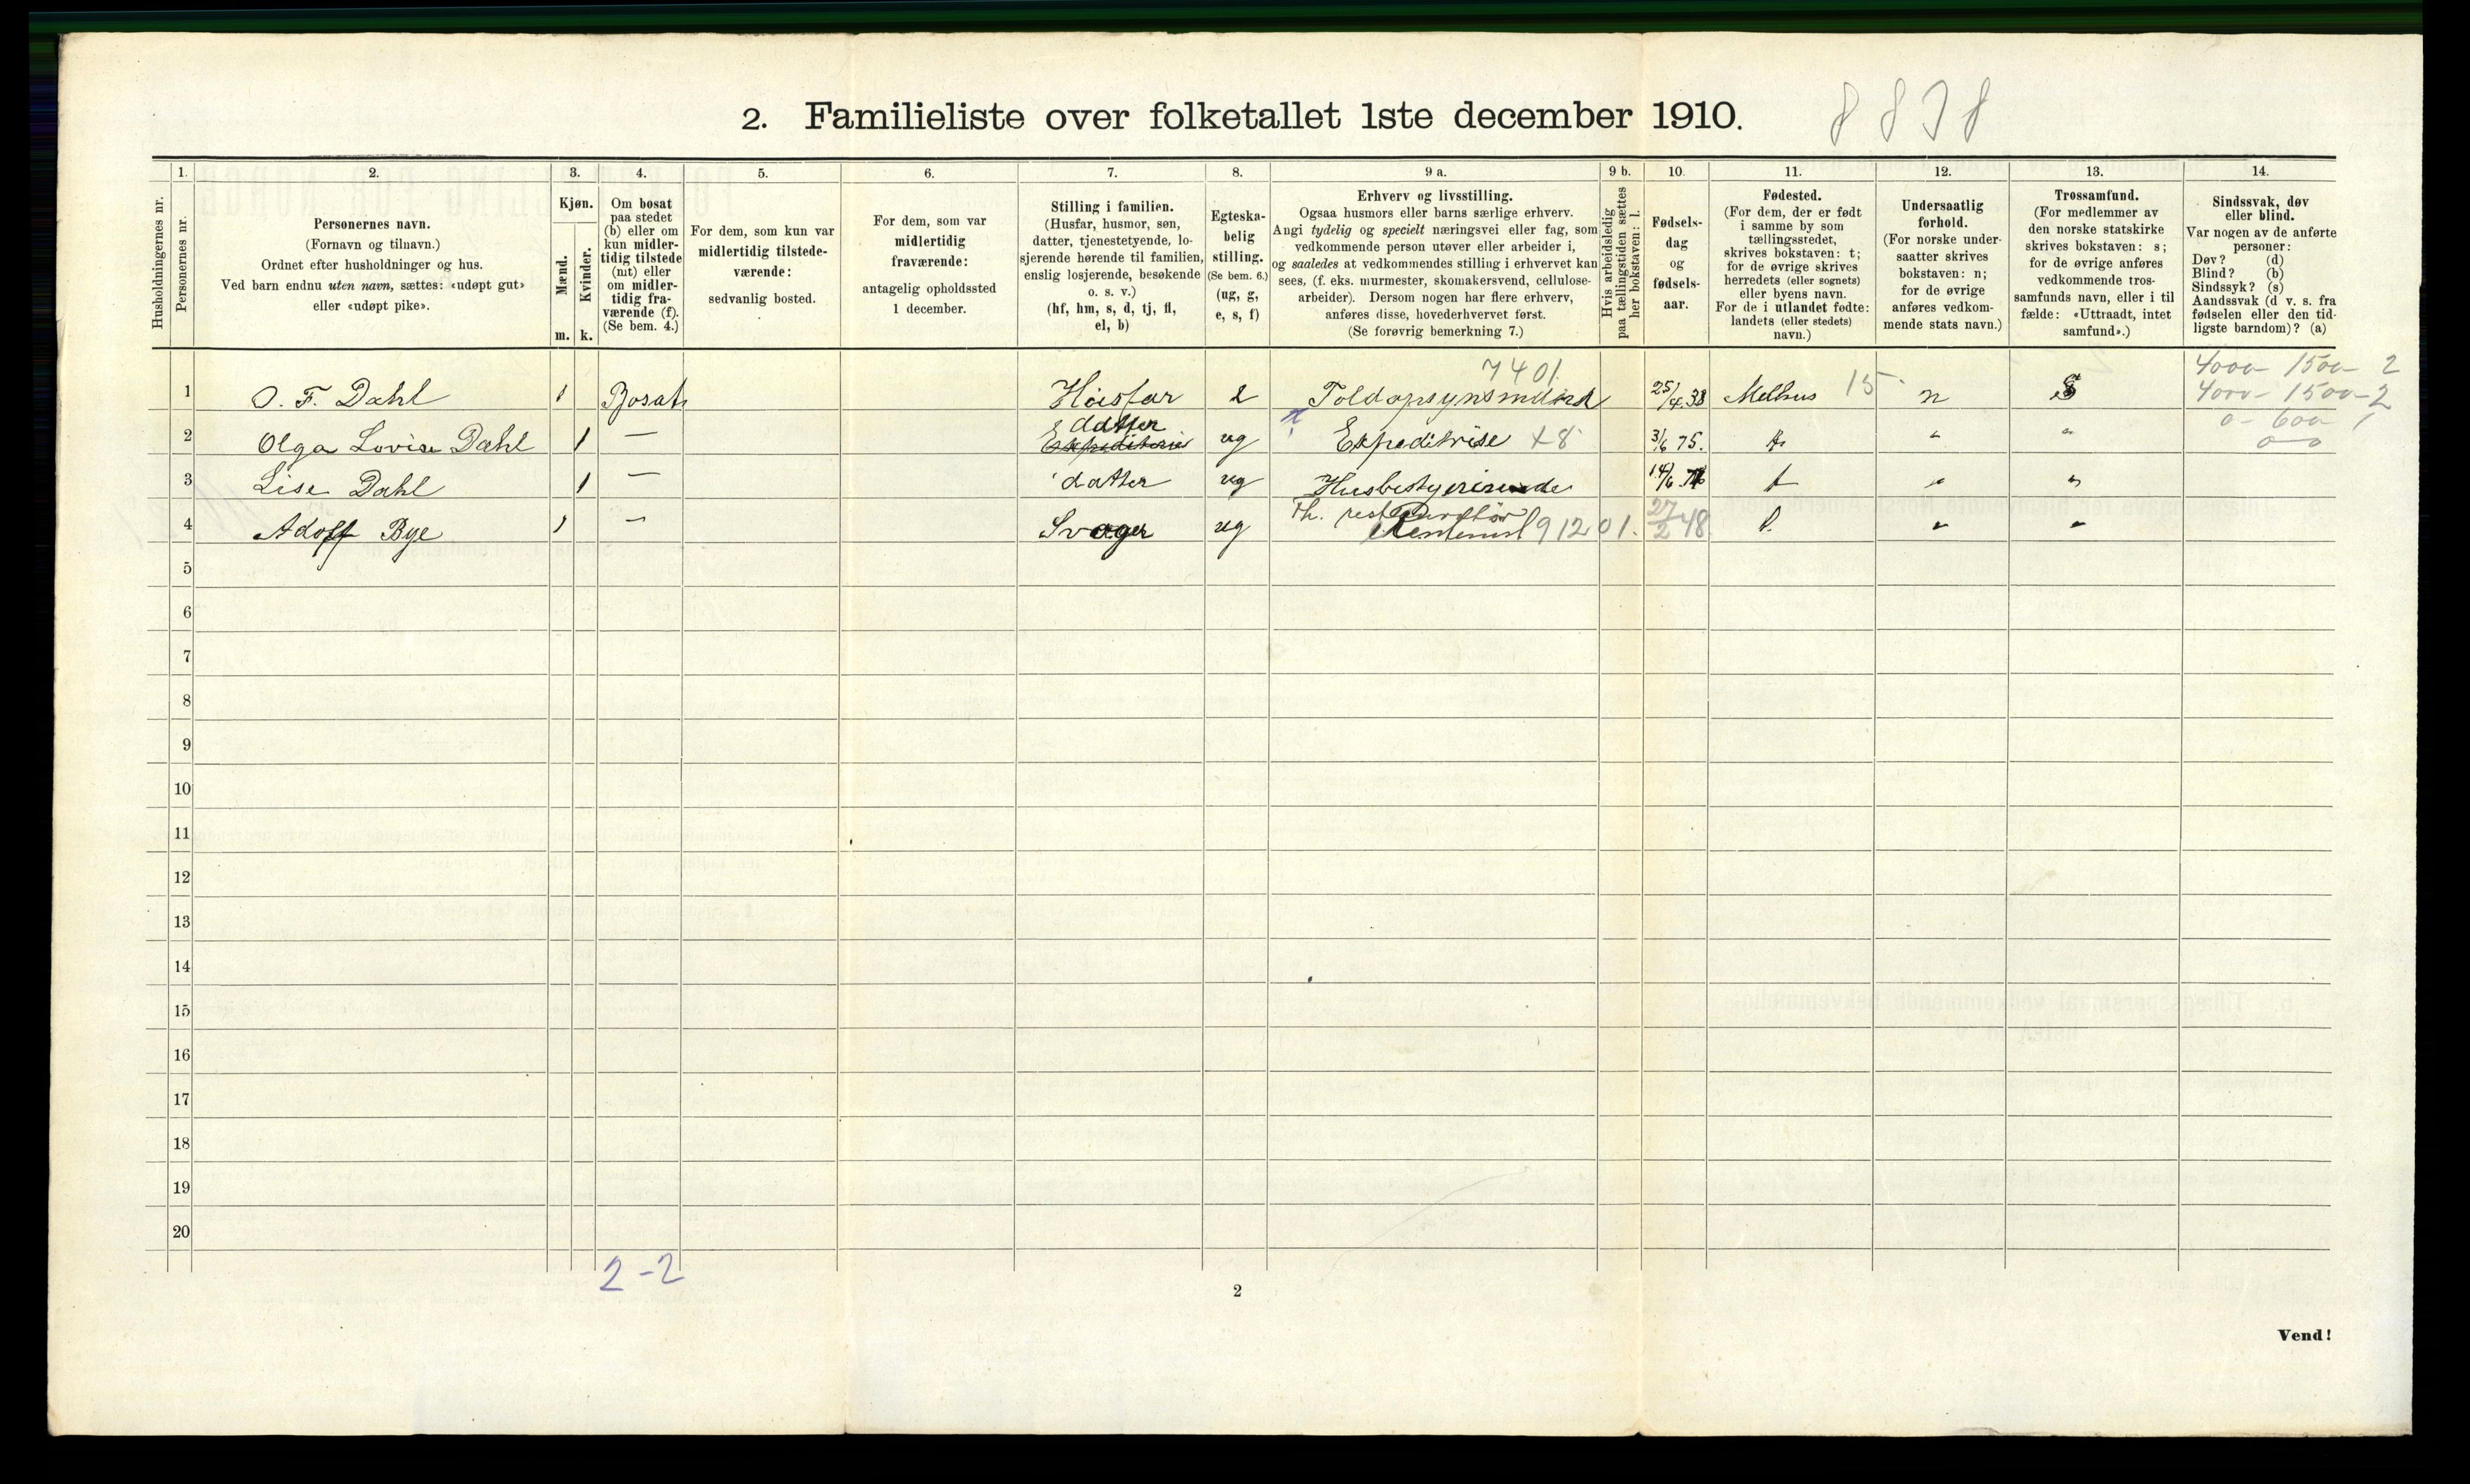 2. Familieliste over folketallet 1ste december 1910.
8838
Husholdningernes nr.
1.
Personernes nr.
2.
Personernes navn.
(Fornavn og tilnavn.)
Ordnet efter husholdninger og hus.
Ved barn endnu uten navn, sættes: «udøpt gut»
eller «udøpt pike».
3.
Kjøn.
Mænd.
Kvinder.
m. k.
4.
Om bosat
paa stedet
(b) eller om
kun midler-
tidig tilstede
(mt) eller
om midler-
tidig fra-
værende (f).
(Se bem. 4.)
5.
For dem, som kun var
midlertidig tilstede-
værende:
sedvanlig bosted.
6.
For dem, som var
midlertidig
fraværende:
antagelig opholdssted
1 december.
7.
Stilling i familien.
(Husfar, husmor, søn,
datter, tjenestetyende, lo-
sjerende hørende til familien,
enslig losjerende, besøkende
o. s. v.)
(hf, hm, s, d, tj, fl,
el, b)
8.
Egteska-
belig
stilling.
(Se bem. 6.)
(ug, g,
e, s, f)
9 a.
Erhverv og livsstilling.
Ogsaa husmors eller barns særlige erhverv.
Angi tydelig og specielt næringsvei eller fag, som
vedkommende person utøver eller arbeider i,
og saaledes at vedkommendes stilling i erhvervet kan
sees, (f. eks. murmester, skomakersvend, cellulose-
arbeider). Dersom nogen har flere erhverv,
anføres disse, hovederhvervet først.
(Se forøvrig bemerkning 7.)
9 b.
Hvis arbeidsledig
paa tællingstiden sættes
her bokstaven: l.
10.
Fødsels-
dag
og
fødsels-
aar.
11.
Fødested.
(For dem, der er født
i samme by som
tællingsstedet,
skrives bokstaven: t;
for de øvrige skrives
herredets (eller sognets)
eller byens navn.
For de i utlandet fødte:
landets (eller stedets)
navn.)
12.
Undersaatlig
forhold.
(For norske under-
saatter skrives
bokstaven: n;
for de øvrige
anføres vedkom-
mende stats navn.)
13.
Trossamfund.
(For medlemmer av
den norske statskirke
skrives bokstaven: s;
for de øvrige anføres
vedkommende tros-
samfunds navn, eller i til
fælde: «Uttraadt, intet
samfund».)
14.
Sindssvak, døv
eller blind.
Var nogen av de anførte
personer:
Døv? (d)
Blind? (b)
Sindssyk? (s)
Aandssvak (d v. s. fra
fødselen eller den tid-
ligste barndom)? (a)
7401. 4000 1500 2
1 O. F. Dahl 1 Bosat Husfar e Toldopsynsmand 25/4.38 Melhus 15 n S 4000 - 1500 - 2
datter 0 - 600 1
2 Olga Lovise Dahl 1 — ug Expeditrise +8 3/6 75. t. " " 0-0
3 Lise Dahl 1 — datter ug Husbestyrerinde 14/6 t " "
4 Adolf Bye 1 — Svager ug Rentenist 91201. 27/2 48 " "
5
6
7
8
9
10
11
12
13
14
15
16
17
18
19
20
2-2
2
Vend!